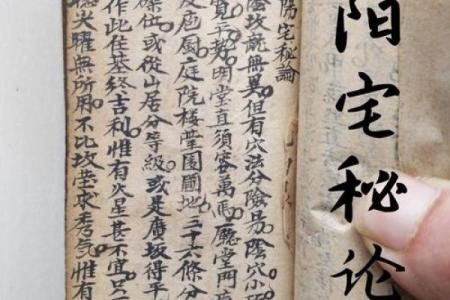 阳宅秘论
陽宅秘論
陰坟龍無異但有穴法分陰昜陰穴小
寬平势明堂直須容萬馬廳堂門
及庖厨庭院楼臺園圃地三十六條分
磔位或從山居分等級或是廣坂得平
作此住基終吉利惟有火星甚不宜只
火曜無所用不比坟塋求秀気惟有